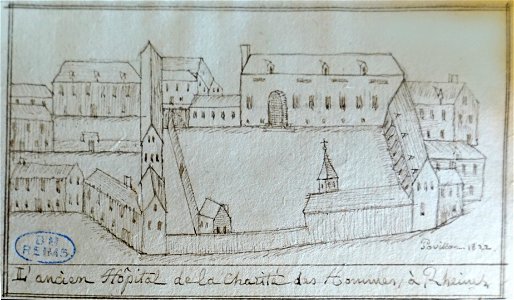 BM
REIMS
Povillon 1822
L'ancien Hôpital de la Charité des Hommes, à Rheims